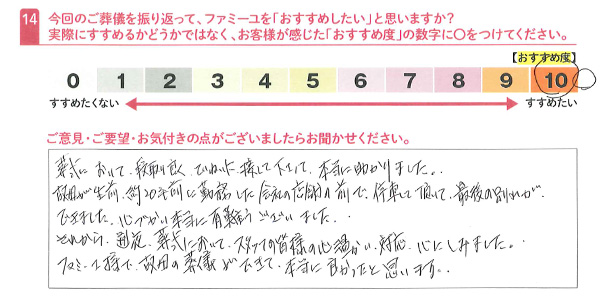 14 今回のご葬儀を振り返って、ファミーユを「おすすめしたい」と思いますか?
実際にすすめるかどうかではなく、お客様が感じた「おすすめ度」の数字に○をつけてください。
【おすすめ度】
0 1 2 3 4 5 6 7 8 9 10
すすめたくない すすめたい
ご意見・ご要望・お気付きの点がございましたらお聞かせください。
葬式において、段取り良く、ていねいに接して下さって、本当に助かりました。
故人が生前、約20年前に勤務した会社の店舗の前で、停車して頂いて、最後の別れが
できました。心づかい本当に有難うございました。
それから、通夜、葬式において、スタッフの皆様の心温かい対応、心にしみました。
ファミーユ様で、故人の葬儀ができて、本当に良かったと思います。